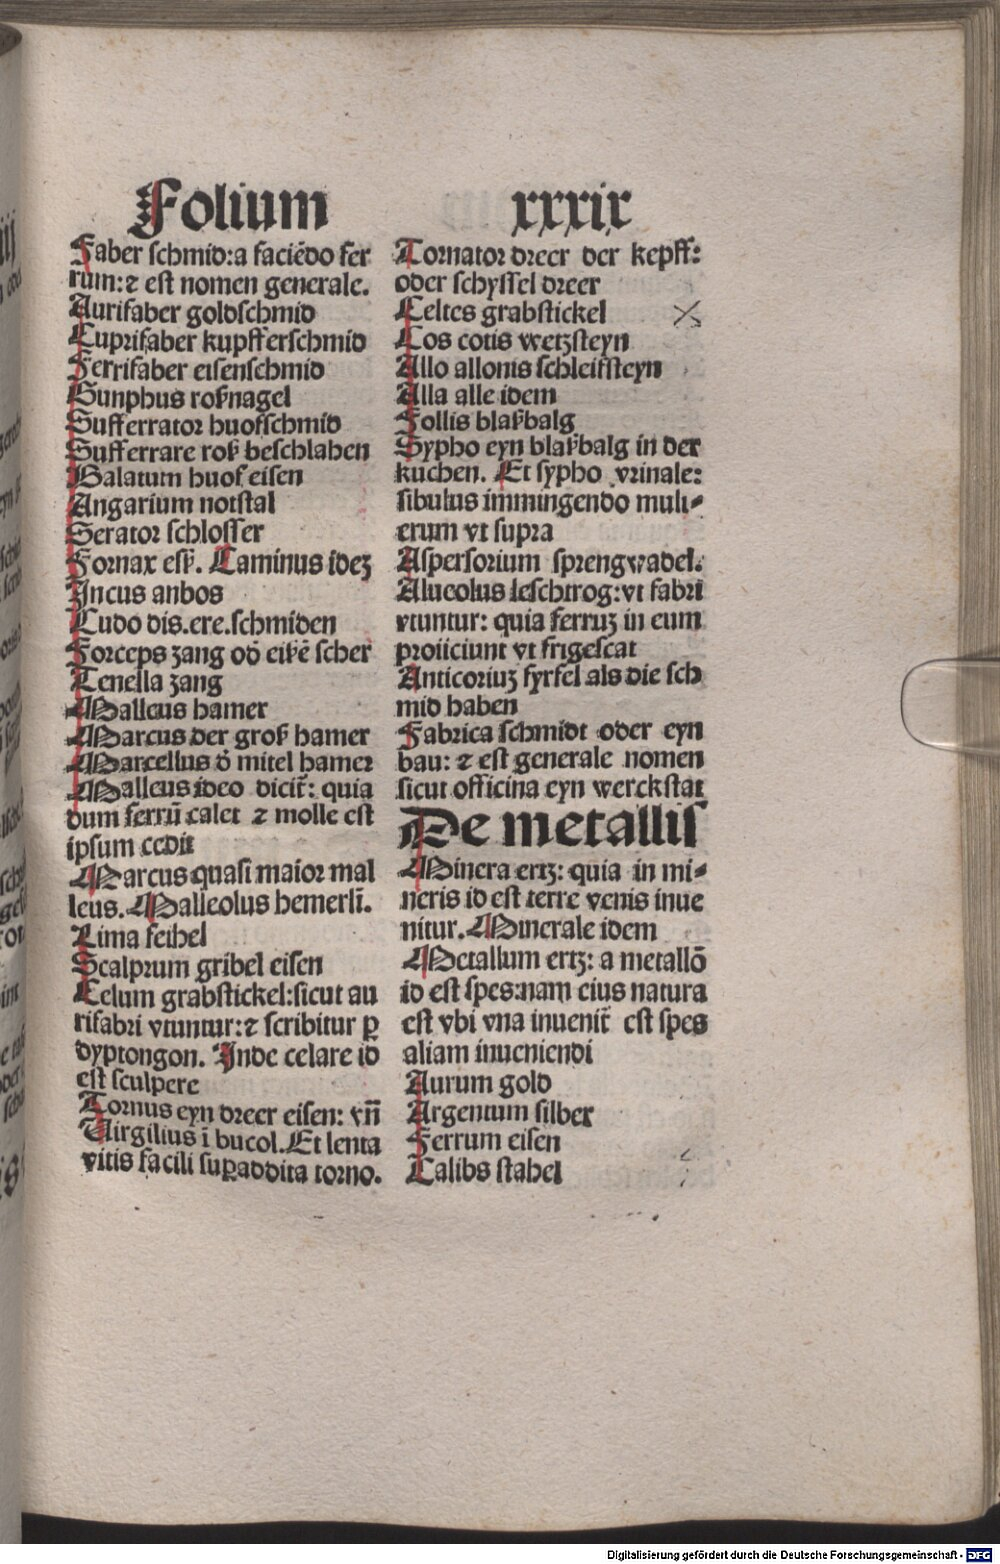 Folium xxxix
Faber schmid:a faciēdo fer
rum:⁊ est nomen generale.
Aurifaber goldschmid
Cuprifaber kupfferschmid
Ferrifaber eisenschmid
Gunphus roßnagel
Sufferrator huofschmid
Sufferrare roß beschlahen
Balatum huof eisen
Angarium notstal
Serator schlosser
Fornax eß. Caminus ideꝫ
Incus anbos
Cudo dis.ere.schmiden
Forceps zang od̄ eißē scher
Tenella zang
Malleus hamer
Marcus der groß hamer
Marcellus d̄ mitel hamer
Malleus ideo dicit̄: quia
dum ferrū calet ⁊ molle est
ipsum cedit
Marcus quasi maior mal
leus. Malleolus hemerlī.
Lima feihel
Scalprum gribel eisen
Celum grabstickel:sicut au
rifabri vtuntur:⁊ scribitur ꝑ
dyptongon. Inde celare id
est sculpere
Tornus eyn dreer eisen: vñ
Virgilius ī bucol. Et lenta
vitis facili suꝑaddita torno.
Tornator dreer der kepff:
oder schyssel dreer
Celtes grabstickel
Cos cotis wetzsteyn
Allo allonis schleifsteyn
Alla alle idem
Follis blaßbalg
Sypho eyn blaßbalg in der
kuchen. Et sypho vrinale:
fibulus immingendo muli-
erum vt supra
Aspersorium sprengwadel.
Alucolus leschtrog:vt fabri
vtuntur: quia ferruꝫ in eum
proiiciunt vt frigescat
Anticoriuꝫ fyrfel als die sch
mid haben
Fabrica schmidt oder eyn
bau: ⁊ est generale nomen
sicut officina eyn werckstat
De metallis
Minera ertz: quia in mi-
neris id est terre venis inue
nitur. Minerale idem
Metallum ertz: a metallō
id est spes:nam eius natura
est vbi vna inuenit̄ est spes
aliam inueniendi
Aurum gold
Argentum silber
Ferrum eisen
Calibs stahel
Digitalisierung gefördert durch die Deutsche Forschungsgemeinschaft - DFG